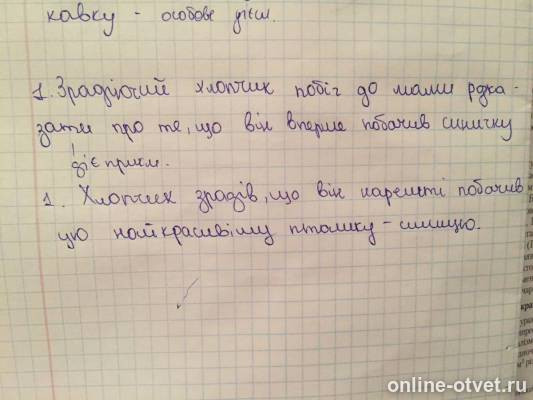 кавку - особове дієсл.
1. Зрадіючий хлопчик побіг до мами
зати про те, що він вперше побачив синичку
діє прикм.
1. Хлопчик зрадів, що він нарешті побачив
цю найкрасивішу пташку - синицю.
online-otvet.ru